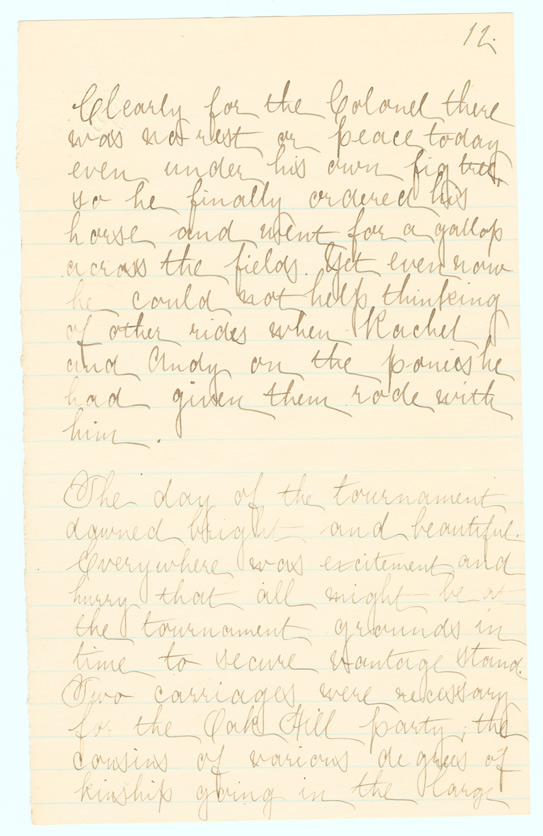 12.
Clearly for the Colonel there
was no rest or peace today
even under his own fig tree,
so he finally ordered his
horse and went for a gallop
across the fields. Yet even now
he could not help thinking
of other rides when Rachel
and Andy on the ponies he
had given them rode with
him.
The day of the tournament
dawned bright and beautiful.
Everywhere was excitement and
hurry that all might be at
the tournament grounds in
time to secure vantage stand.
Two carriages were necessary
for the Oak Hill party, the
cousins of various degrees of
kinship going in the large